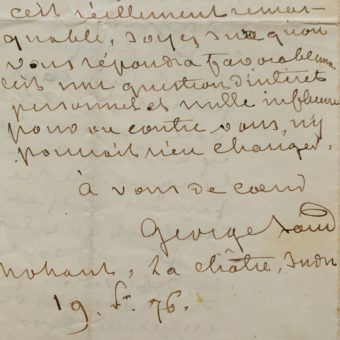 c'est réellement remar-
quable, soyez sur qu'on
vous répondra favorablement
c'est une question d'intérêt
personnel et nulle influence
pour ou contre vous, n'y
pourrait rien changer.
à vous de cœur
George Sand
Nohant, La châtre, Indre
19. fr. 76.